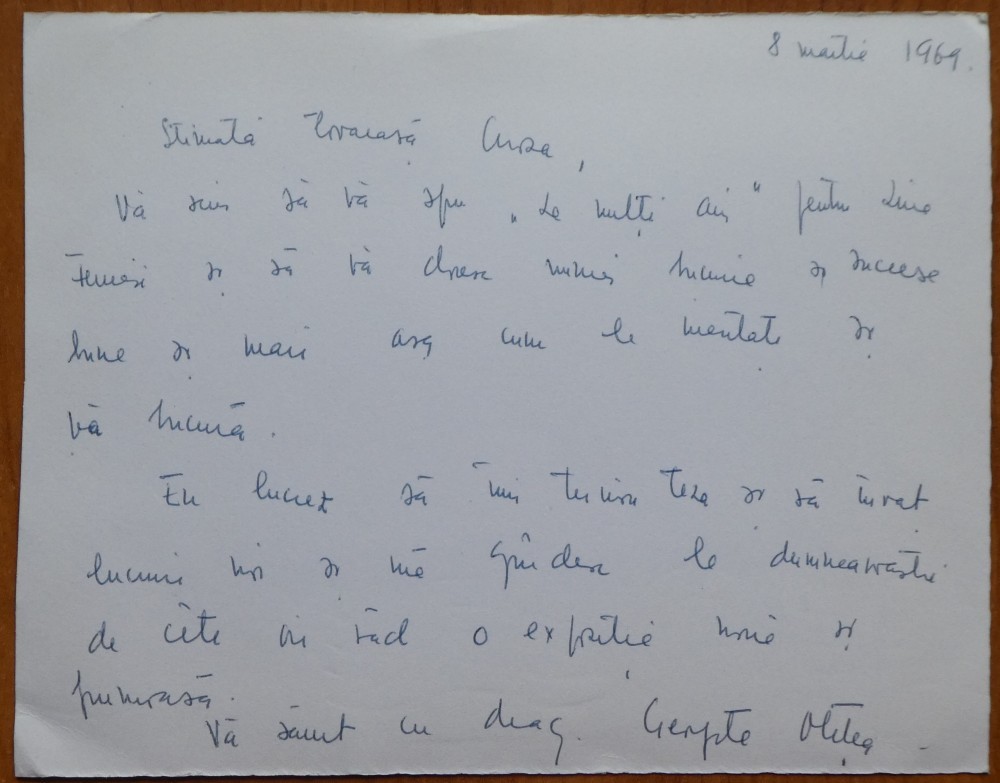 8 martie 1969.
Stimată Tovarașă Cuza,
Vă scriu să vă spun „La mulți ani" pentru Ziua
Femeii și să vă doresc numai bucurie și succese
bune și mari așa cum le meritați și
vă bucură.
Eu lucrez să îmi termin teza și să învăț
lucruri noi și mă gîndesc la dumneavoastră
de cîte ori văd o expoziție nouă și
frumoasă.
Vă sărut cu drag. Oltea